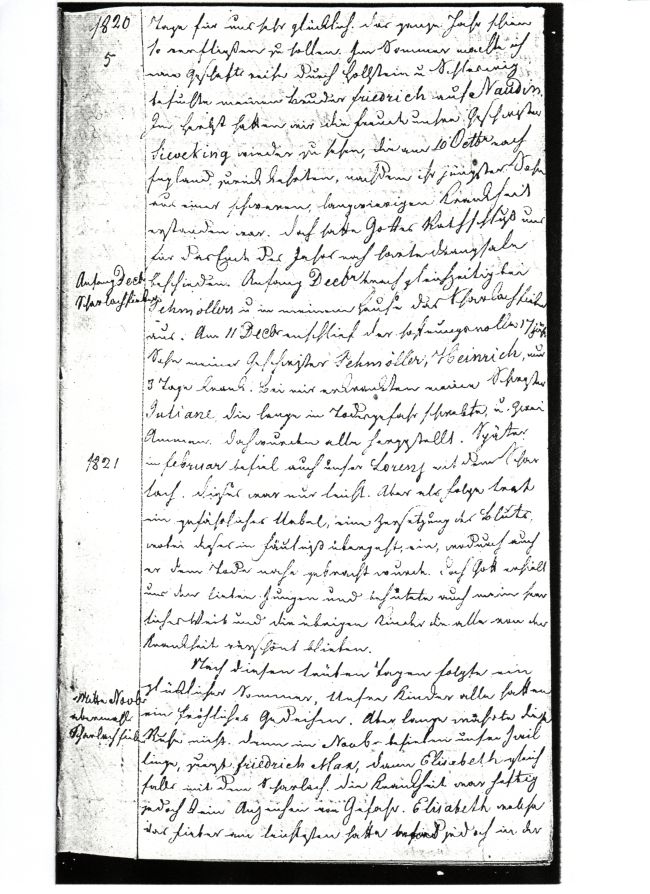 1820
5
Tage für uns sehr glücklich. das ganze Jahr schien
so verfließen zu sollen. Im Sommer machte ich
eine Geschäftsreise durch Hollstein u Schleswig
besuchte meinen Bruder Friedrich auf
Im Herbst hatten wir die Freude unsre Geschwister
Sieveking wieder zu sehen, die am 10 Octbr nach
England zurück kehrten, nachdem ihr jüngster Sohn
aus einer schweren, langwierigen Krankheit
erstanden war. Doch hatte Gottes Rathschluß uns
für das Ende des Jahres noch harte Drangsale
Anfang Decbr
Scharlachfieber
beschieden. Anfang Decbr brach gleichzeitig bei
Schmöllers u in meinem Hause das Scharlachfieber
aus. Am 11 Decbr entschlief der hoffnungsvolle 17 jähr
Sohn meiner Geschwister Schmöller, Heinrich, nur
3 Tage krank. Bei mir erkrankten meine Schwester
Juliane, die lange in Todesgefahr schwebte, u. zwei
Ammen. Doch wurden alle hergestellt. Später
1821
im Februar befiel auch unser Lorenz mit dem Schar
lach. dieses war nur leicht. Aber als Folge trat
ein gefährliches Uebel, eine Zersetzung des Bluts,
wobei dieses in Fäulniß übergeht, ein, wodurch auch
er dem Tode nahe gebracht wurde. Doch Gott erhielt
uns den lieben Jungen und behütete auch mein herr
liches Weib und die übrigen Kinder die alle von der
Krankheit verschont blieben.
Nach diesen trüben Tagen folgte ein
glücklicher Sommer, Unsre Kinder alle hatten
Mitte Novbr
abermals
Scharlachfieber
ein fröhliches Gedeihen. Aber lange währte diese
Ruhe nicht. denn im Novbr befielen unsre Zwil
linge, zuerst Friedrich Max, dann Elisabeth gleich
falls mit dem Scharlach. die Krankheit war heftig
jedoch kein Anzeichen von Gefahr. Elisabeth welche
das Fieber am leichtesten hatte jedoch in der